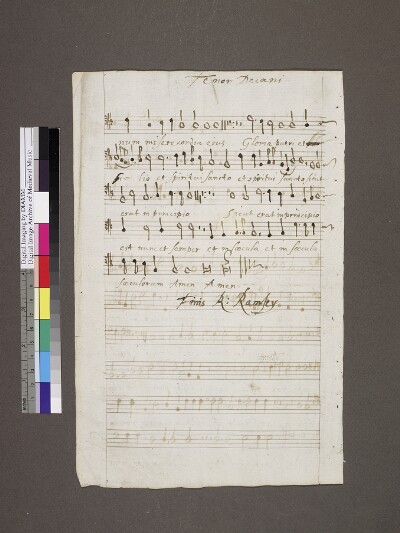 Tenor Decani
num misericordia eius Gloria patri et
filio et spiritui sancto et spiritui sancto sicut
erat in principio Sicut erat in principio
est nunc et semper et in sæcula et in sæcula
sæculorum Amen Amen
Finis R: Ramsey
Digital Imaging by DIAMM
Digital Image Archive of Medieval Music